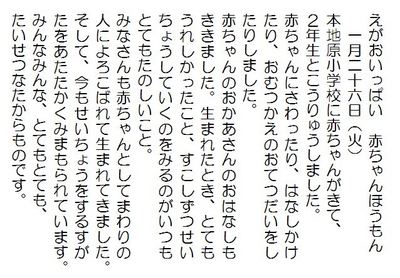 えがおいっぱい　赤ちゃんほうもん
一月二十六日（火）
本地原小学校に赤ちゃんがきて、
２年生とこうりゅうしました。
赤ちゃんにさわったり、はなしかけ
たり、おむつかえのおてつだいをし
たりしました。
赤ちゃんのおかあさんのおはなしも
ききました。生まれたとき、とても
うれしかったこと、すこしずつせい
ちょうしていくのをみるのがいつも
とてもたのしいこと。
みなさんも赤ちゃんとしてまわりの
人によろこばれて生まれてきました。
そして、今もせいちょうをするすが
たをあたたかくみまもられています。
みんなみんな、とてもとても、
たいせつなたからものです。